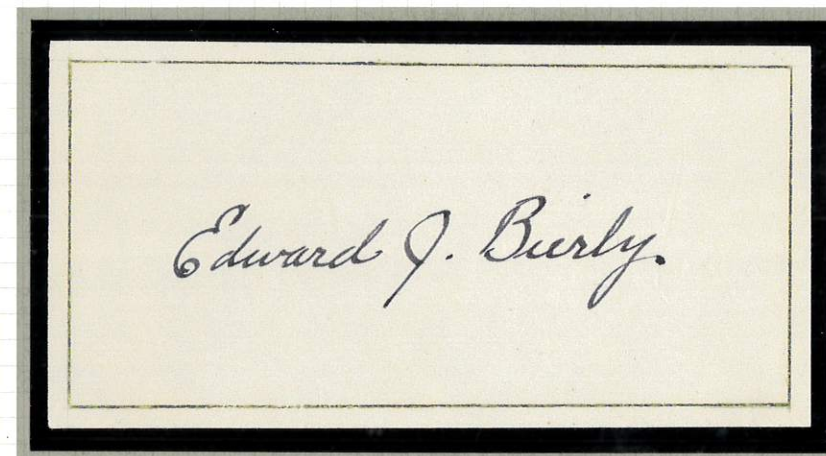 Edward J. Bierly.